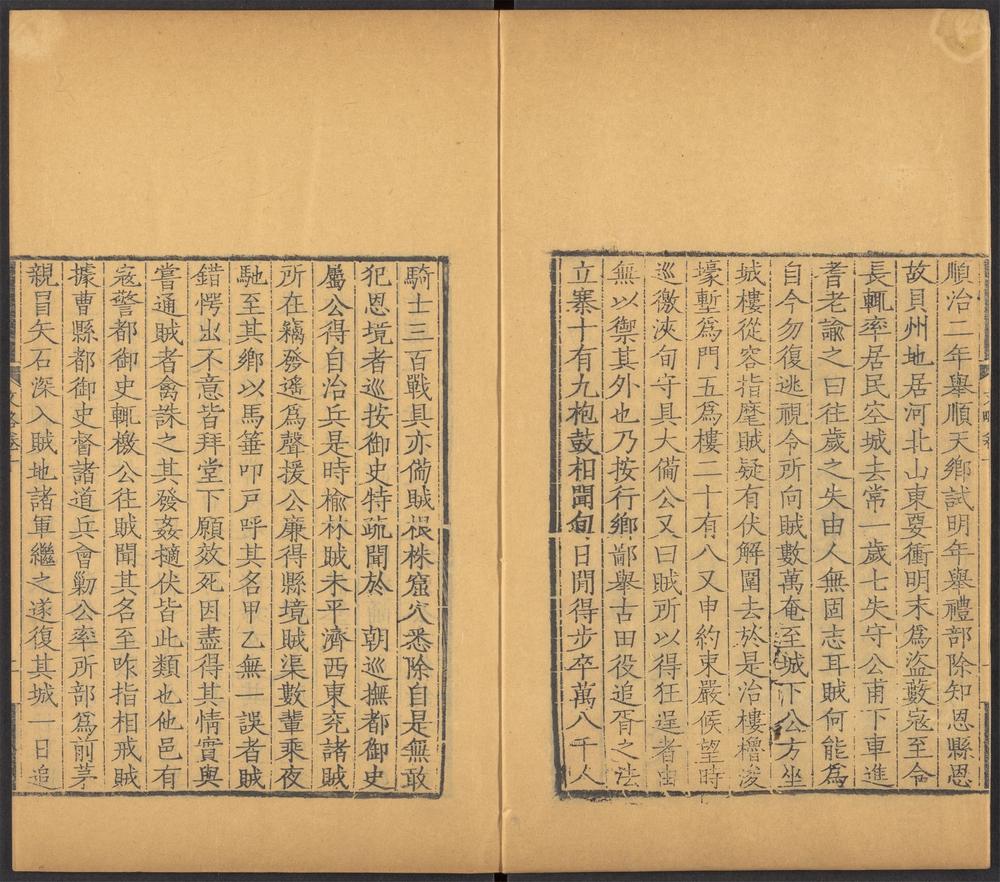 順治二年舉順天鄉試明年舉禮部除知恩縣恩
故貝州地居河北山東要衝明末為盜藪寇至令
長輒率居民空城去常一歲七失守公甫下車進
耆老諭之曰往歲之失由人無固志耳賊何能為
自今勿復逃視令所向賊數萬奄至城下公方坐
城樓從容指麾賊疑有伏解圍去於是治樓櫓浚
壕塹為門五為樓二十有八又申約束嚴候望時
巡徼浹旬守具大備公又曰賊所以得狂逞者由
無以禦其外也乃按行鄉鄙舉古田役追胥之法
立寨十有九枹鼓相聞旬日閒得步卒萬八千人
騎士三百戰具亦備賊根株窟穴悉除自是無敢
犯恩境者巡按御史特疏聞於　朝巡撫都御史
屬公得自治兵是時榆林賊未平濟西東兗諸賊
所在竊發遙為聲援公廉得縣境賊渠數輩乘夜
馳至其鄉以馬箠叩戶呼其名甲乙無一誤者賊
錯愕出不意皆拜堂下願效死因盡得其情實與
嘗通賊者禽誅之其發姦擿伏皆此類也他邑有
寇警都御史輒檄公往賊聞其名至咋指相戒賊
據曹縣都御史督諸道兵會勦公率所部為前茅
親冒矢石深入賊地諸軍繼之遂復其城一日追